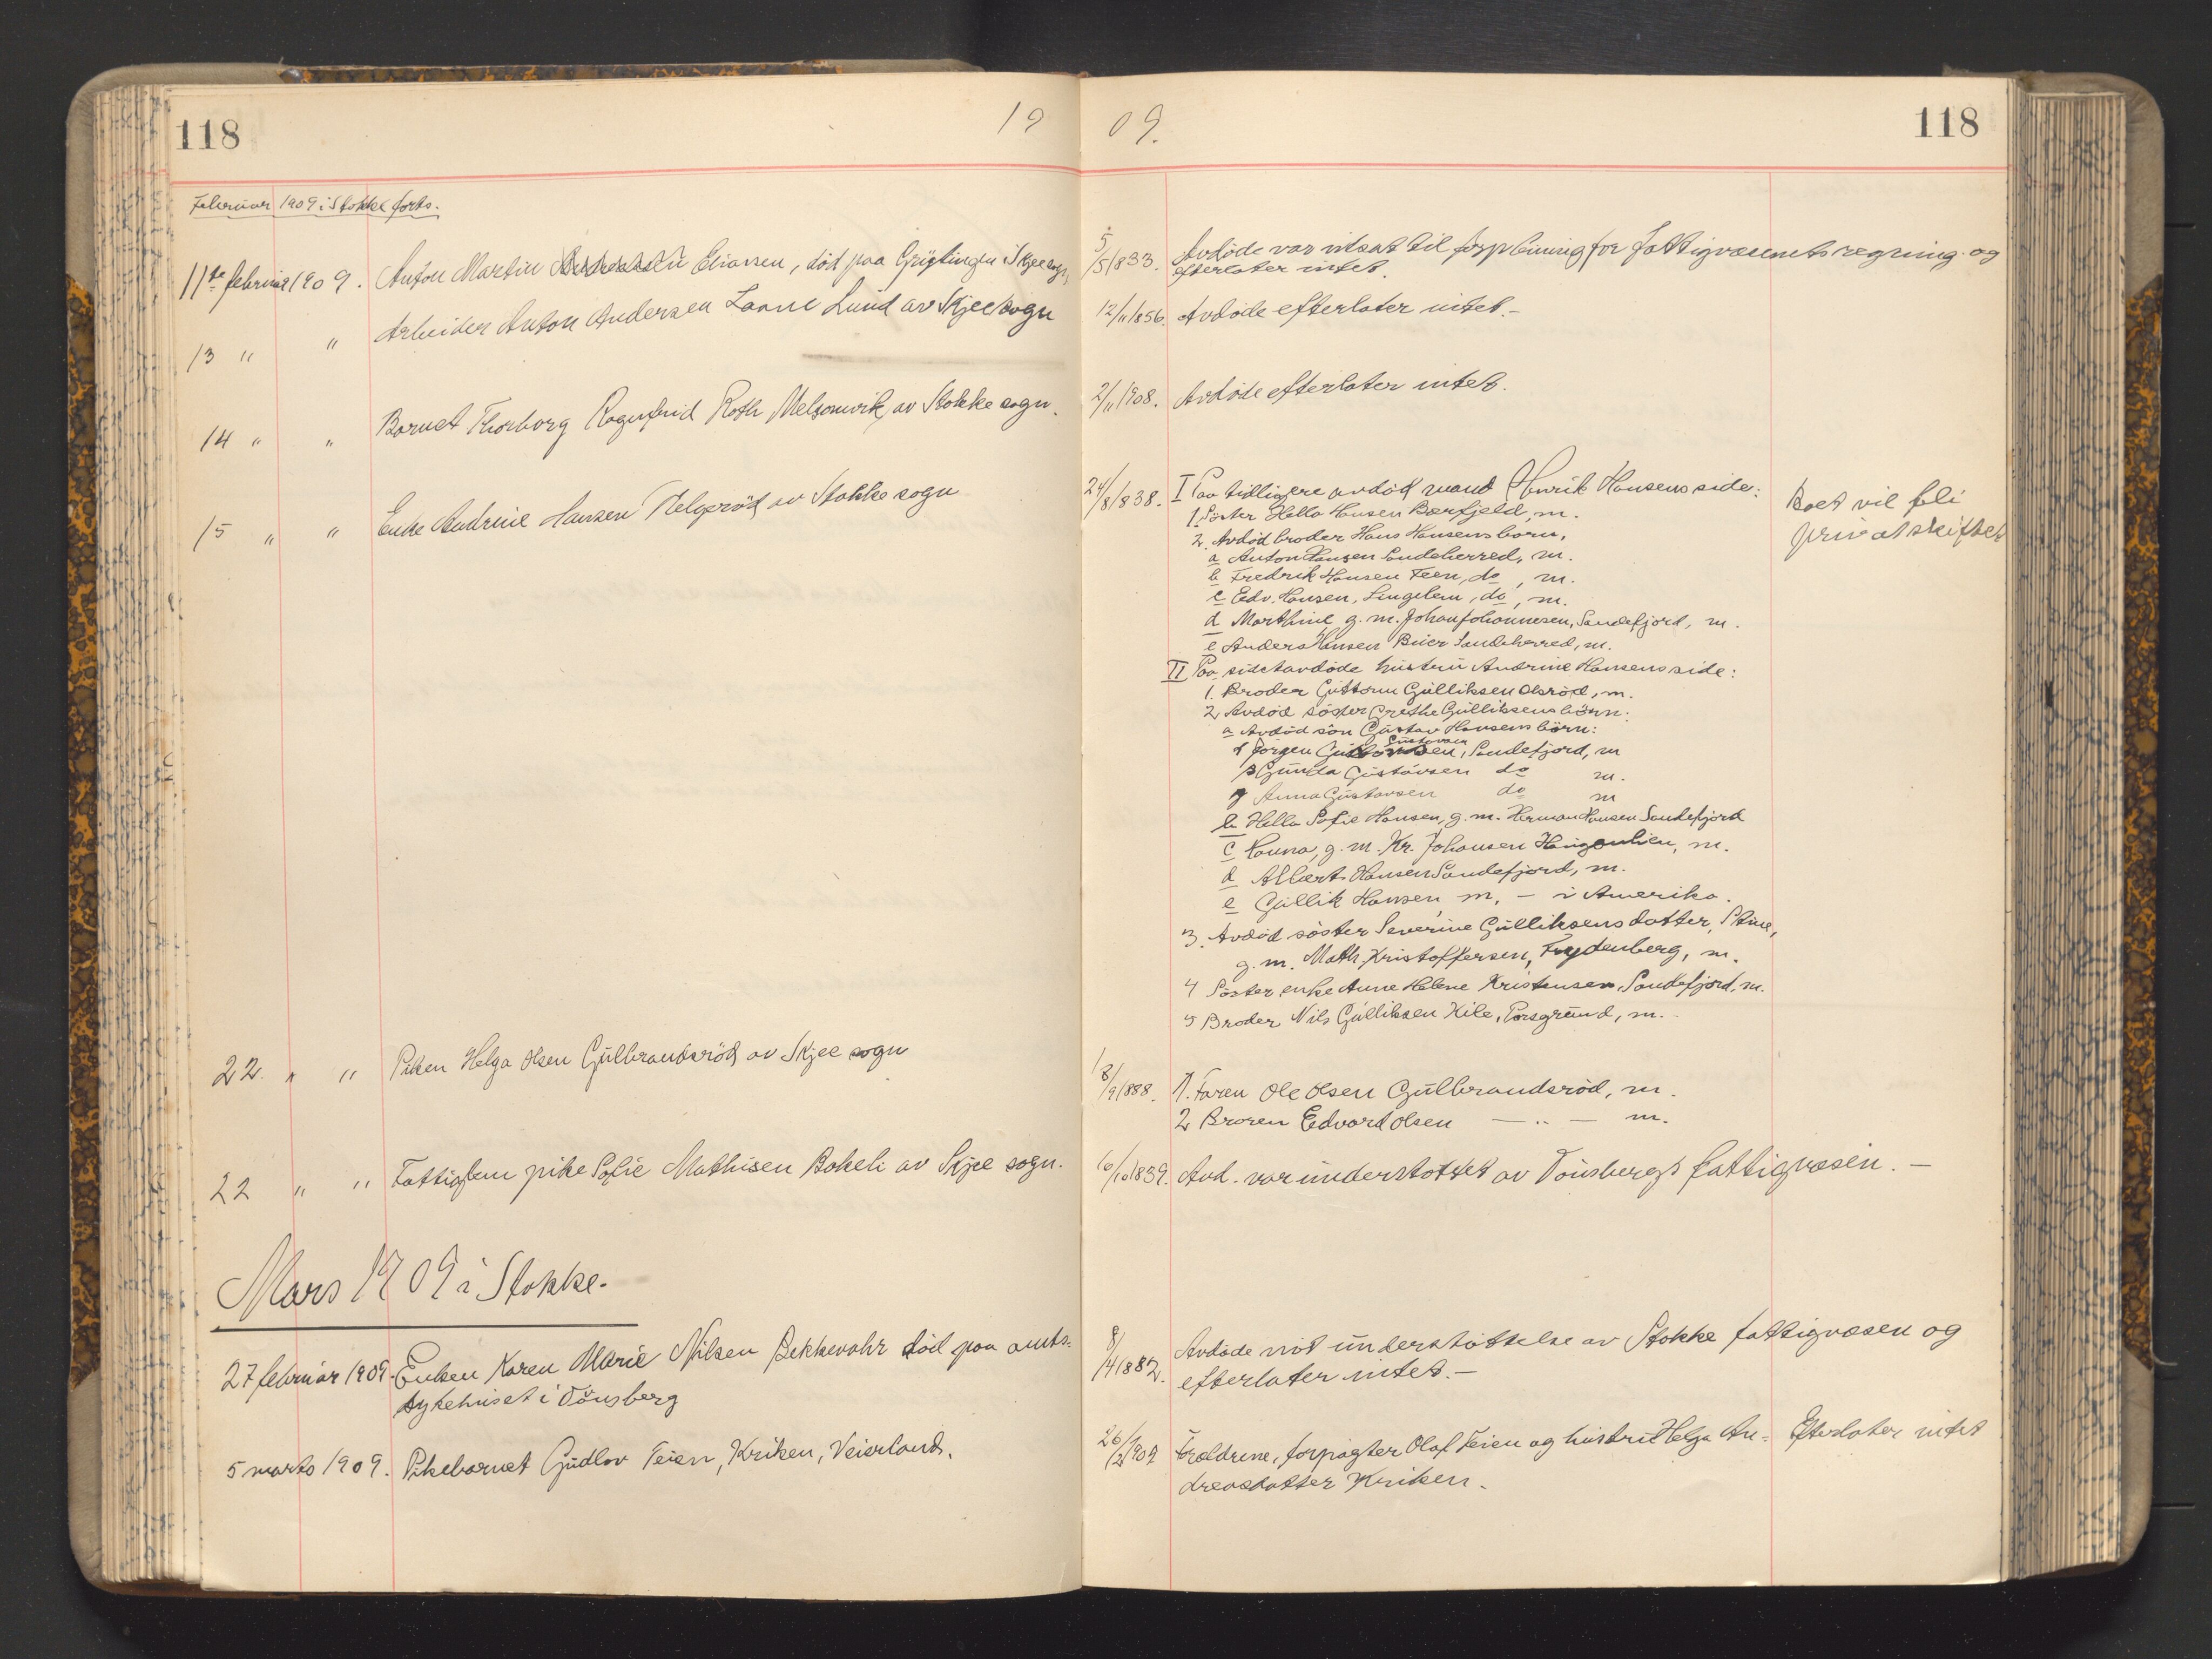 118
19
Februar 1909 i Stokke forts.
11te februar 1909. Anton Martin Eliassen, död paa Grytingen i Skjee sogn,
13 " " Arbeider Anton Andersen Lanne Lund av Skjee sogn
14 " " Barnet Thorborg Ragnfrid Roth, Melsomvik av Stokke sogn.
15 " " Enke Andrine Hansen Helgeröd av Stokke sogn
22. " " Piken Helga Olsen Gulbrandsröd av Skjee sogn
22 " " Fattiglem pike Sofie Mathisen Bokeli av Skjee sogn.
Mars 1909 i Stokke.
27 februar 1909. Enken Karen Marie Nilsen Bekkevahr död paa amts-
sykehuset i Tönsberg
5 marts 1909. Pikebarnet Gudlov Feien, Kriken, Veierland.
09.
118
5/5 1833. Avdöde var utsat til forpleining for fattigvæsenets regning og
efterlater intet.
12/11 1856. Avdöde efterlater intet.-
2/11 1908. Avdöde efterlater intet.
24/8 1838. I Paa tidligere avdöd mand Henrik Hansens side: Boet vil bli
1. Söster Hella Hansen Bærfjeld, m. privatskiftet
2. Avdöd broder Hans Hansens barn,
a Anton Hansen Sandeherred, m.
b Fredrik Hansen Feen, do, m.
c Edv. Hansen, Lingelem, do, m.
d Marthine g. m. Johan Johannesen, Sandefjord, m.
e Anders Hansen Buer Sandeherred, m.
II Paa sidstavdöde hustru Andrine Hansens side:
1. Broder Guttorm Gulliksen Olsröd, m.
2 Avdöd söster Grethe Gulliksens börn:
a Avdöd sön Gustav Hansens börn:
α Jörgen Gustavsen, Sandefjord, m
β Gunda Gustavsen do m.
γ Anna Gustavsen do m
b Hella Sofie Hansen, g. m. Herman Hansen Sandefjord
c Hanna, g. m. Kr. Johansen Haugenlien, m.
d Albert Hansen Sandefjord, m.
e Gullik Hansen, m, - i Amerika.
3. Avdöd söster Severine Gulliksens datter, Stine,
g. m. Math. Kristoffersen, Frydenberg, m.
4 Söster, enke Anne Helene Kristensen, Sandefjord, m.
5 Broder Nils Gulliksen Kile, Porsgrund, m.
18/9 1888. 1. Faren Ole Olsen Gulbrandsröd, m.
2 Broren Edvard Olsen — " — m.
16/10 1839. Avd. var understöttet av Tönsbergs fattigvæsen. -
8/4 1882. Avdöde nöt understöttelse av Stokke fattigvæsen og
efterlater intet.-
26/2 1909 Foreldrene, forpagter Olaf Feien og hustru Helga An- Efterlater intet
dreasdatter Kriken.